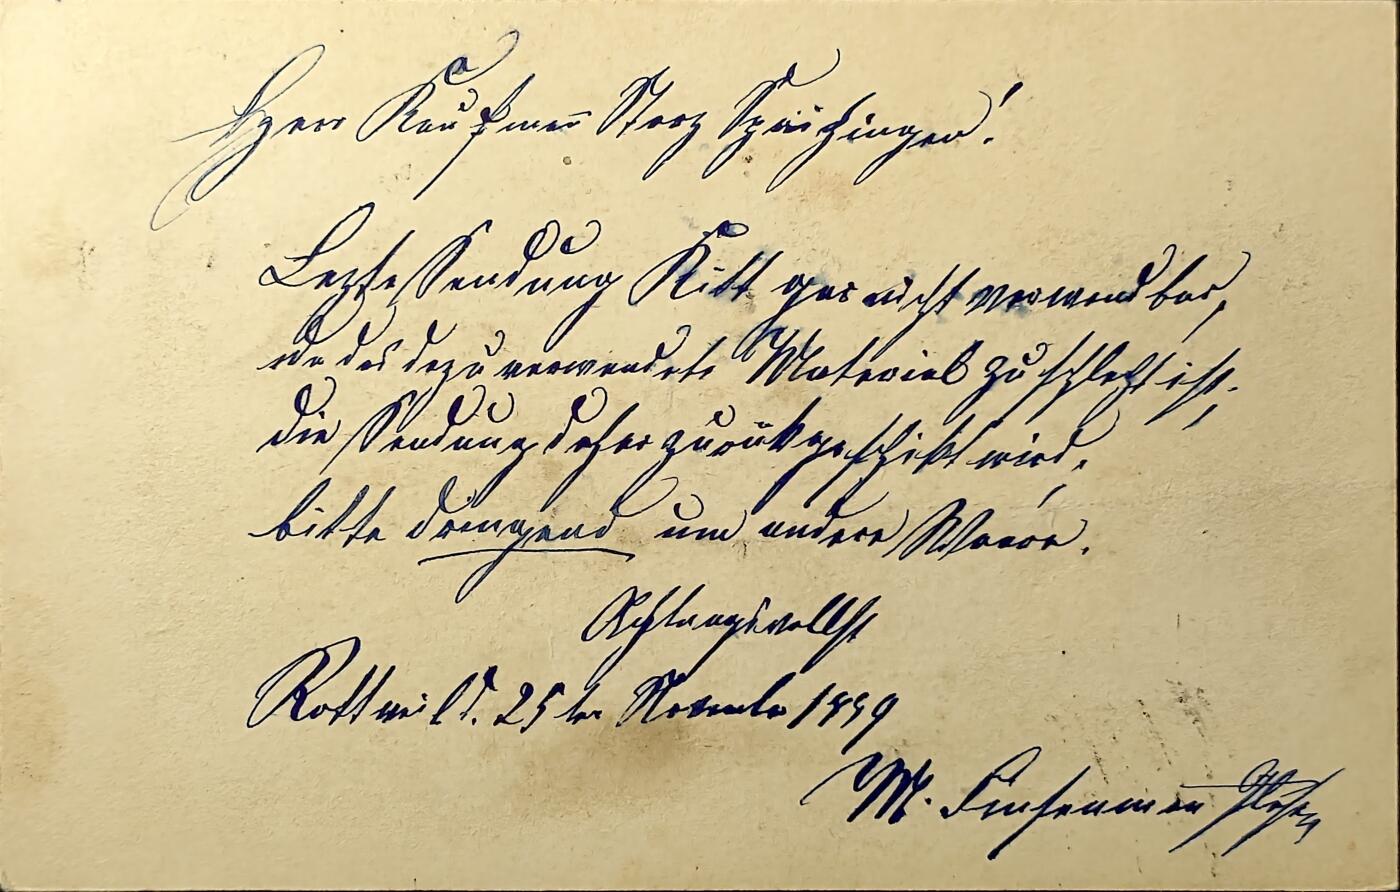 Herr Kaufmann Storz Spaichingen!
Lezte Sendung Kitt gar nicht verwendbar,
da das dazu verwendete Material zu schlecht ist,
die Sendung daher zurükgeschikt wird,
bitte dringend um andere Waare.
Achtungsvollst
Rottweil d. 25ten November 1889
M.